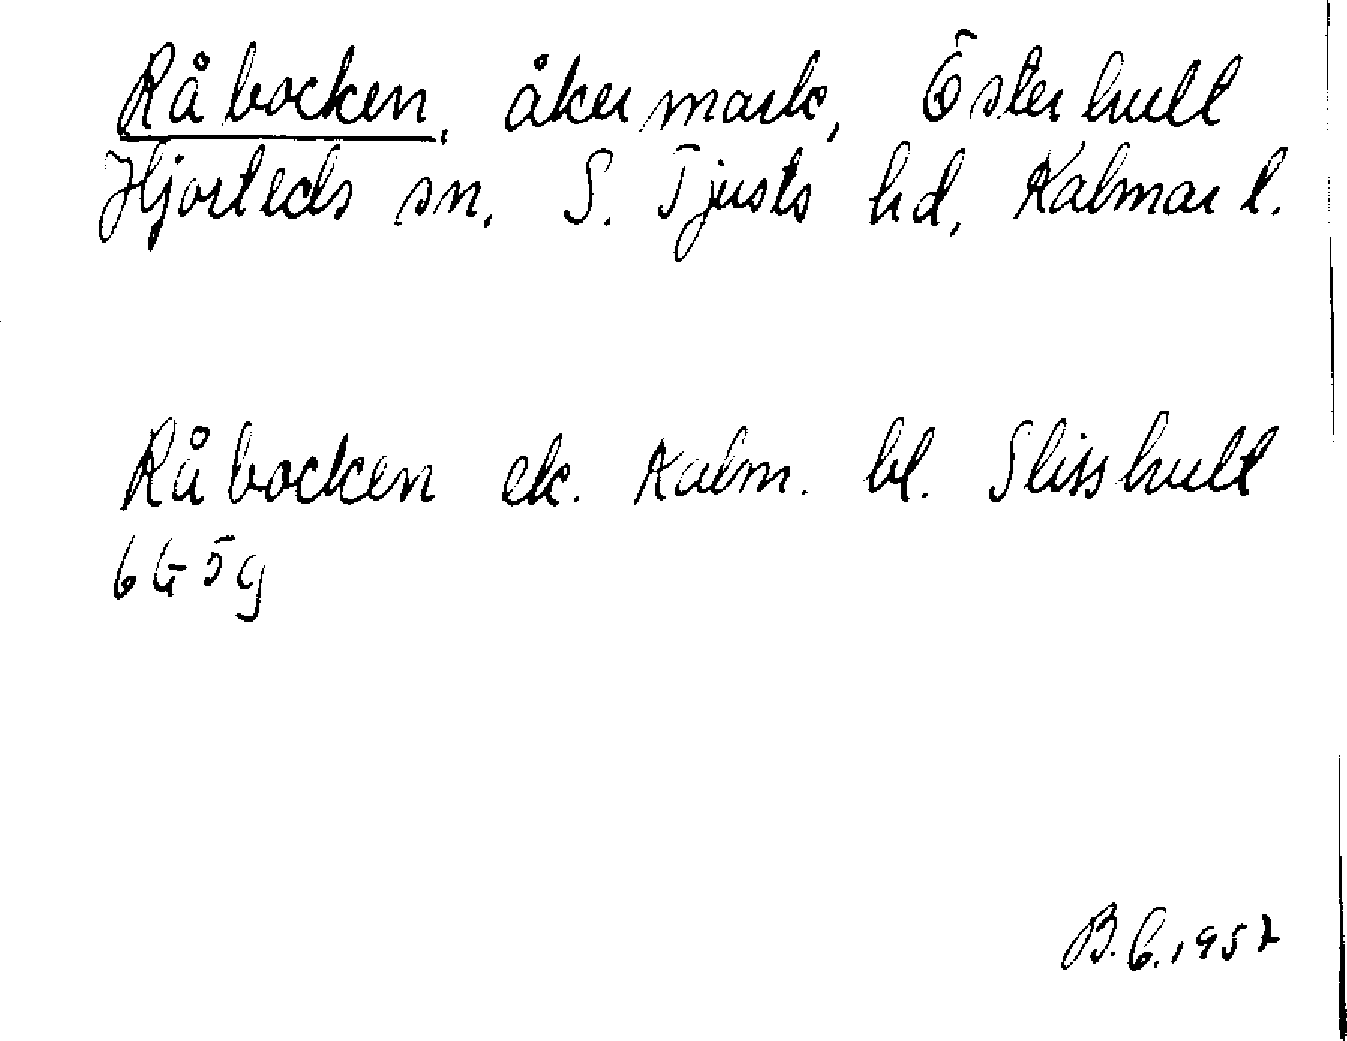 Råbocken, åkermark, Österhult
Hjorteds sn. S. Tjusts hd, Kalmar l.
Råbocken ek. Kalm. bl. Slisshult
6G5g
B.E. 1957